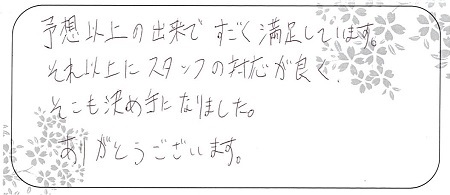 予想以上の出来ですごく満足しています。
それ以上にスタッフの対応が良く、
そこも決め手になりました。
ありがとうございます。